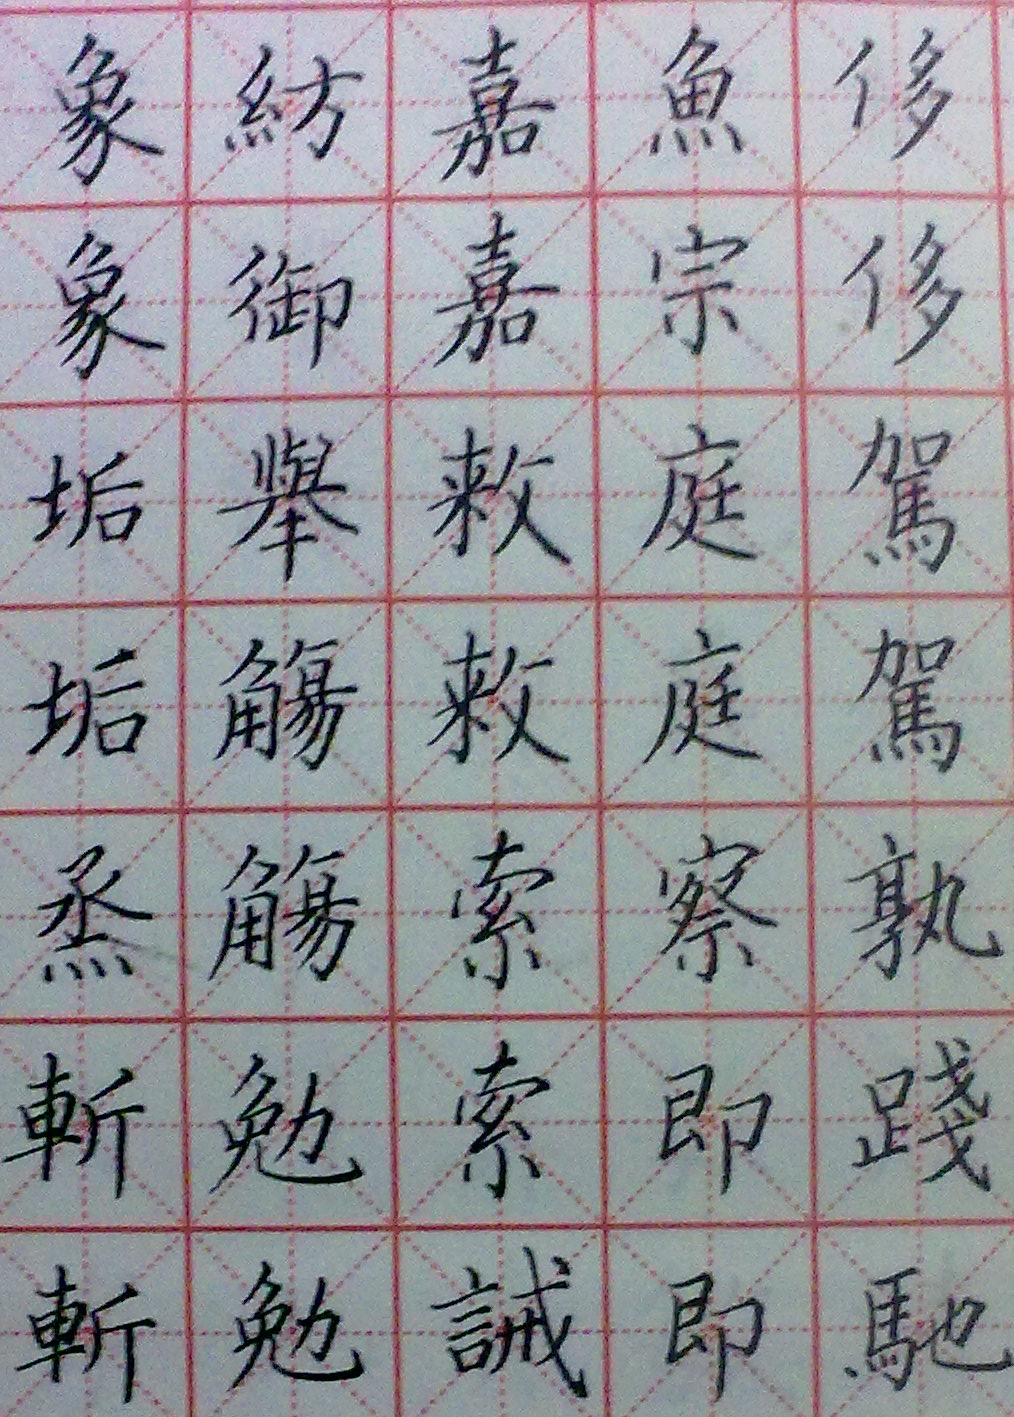 侈侈駕駕孰踐馳
魚宗庭庭察即即
嘉嘉敕敕索索誡
紡御舉觴觴勉勉
象象垢垢烝斬斬